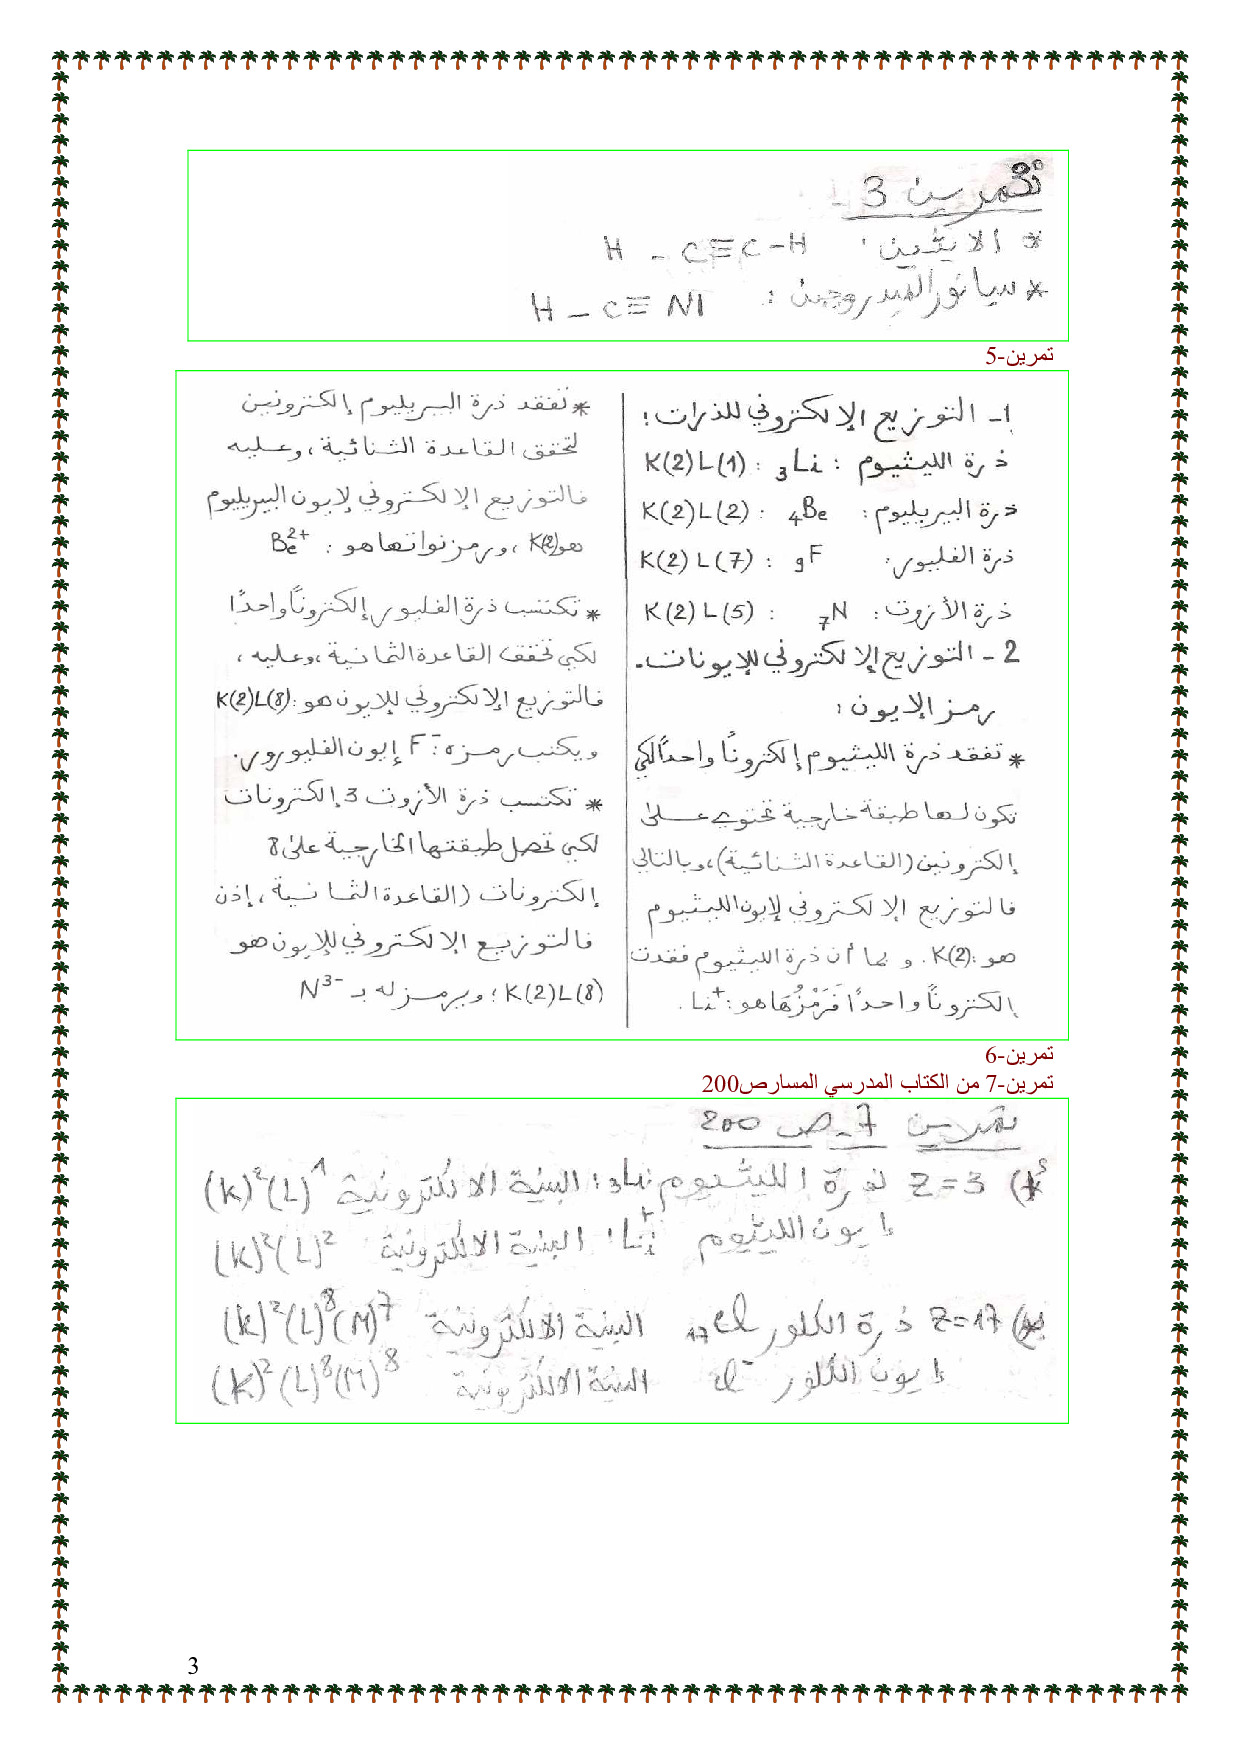 تمرين 3
* الايثين: H - C≡C-H
* سيانور الهيدروجين: H - C≡N
تمرين-5
1- التوزيع الإلكتروني للذرات:
ذرة الليثيوم: ₃Li : K(2)L(1)
ذرة البيريليوم: ₄Be : K(2)L(2)
ذرة الفليور: ₉F : K(2)L(7)
ذرة الأزوت: ₇N : K(2)L(5)
2- التوزيع الإلكتروني للإيونات.
رمز الإيون:
* تفقد ذرة الليثيوم إلكترونًا واحدًا لكي
تكون لها طبقة خارجية تحتوي على
إلكترونين (القاعدة الثنائية)، وبالتالي
فالتوزيع الإلكتروني لإيون الليثيوم
هو: K(2). و بما أن ذرة الليثيوم فقدت
إلكترونًا واحدًا فَرَمْزُهَا هو: Li⁺.
* تفقد ذرة البيريليوم إلكترونين
لتحقق القاعدة الثنائية، وعليه
فالتوزيع الإلكتروني لإيون البيريليوم
هو K(2)، ورمز نواتها هو: Be²⁺
* تكتسب ذرة الفليور إلكترونًا واحدًا
لكي تحقق القاعدة الثمانية، وعليه،
فالتوزيع الإلكتروني للإيون هو: K(2)L(8)
ويكتب رمزه: F⁻ إيون الفليورور.
* تكتسب ذرة الأزوت 3 إلكترونات
لكي تصل طبقتها الخارجية على 8
إلكترونات (القاعدة الثمانية، إذن
فالتوزيع الإلكتروني للإيون هو
K(2)L(8)؛ ويرمز له بـ N³⁻
تمرين-6
تمرين-7 من الكتاب المدرسي المسارص200
تمرين 7- ص 200
أ) Z=3 ذرة الليثيوم ₃Li: البنية الالكترونية (K)²(L)¹
ايون الليثيوم Li⁺: البنية الالكترونية (K)²(L)²
ب) Z=17 ذرة الكلور ₁₇Cl البنية الالكترونية (K)²(L)⁸(M)⁷
ايون الكلور Cl⁻ البنية الالكترونية (K)²(L)⁸(M)⁸
3